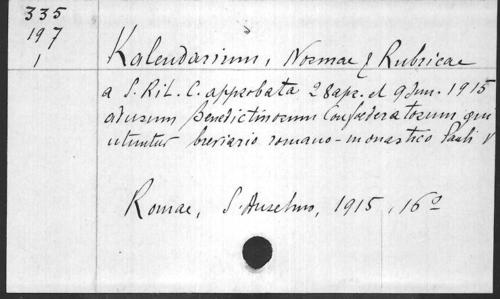 335
197
1
Kalendarium, Normae & Rubricae
a S. Rit. C. approbata 28 apr. et 9 Jun. 1915
ad usum Benedictinorum Confoederatorum qui
utuntur breviario romano-monastico Pauli V
Romae, S. Anselmo, 1915, 16º